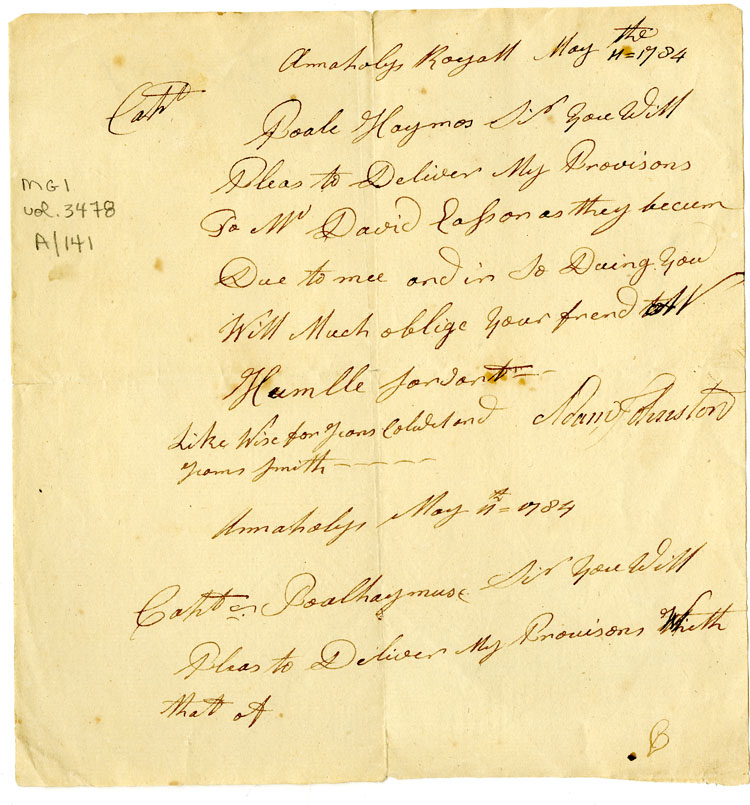 Annaholys Royall May the 11 = 1784
Capt
Poale Haymos Sir You Will
Pleas to Deliver My Provisons
To Mr David Casson as they becum
Due to mee and in So Duing You
Will Much oblige Your frend
Humlle Sarvant
Adam Johnston
Like Wise for Jeams and
Jeams Smith
Annaholys May 11th = 1784
Capt Poalhaymuse Sir You Will
Pleas to Deliver My Provisons With
that of
MG1
vol. 3478
A/141
B